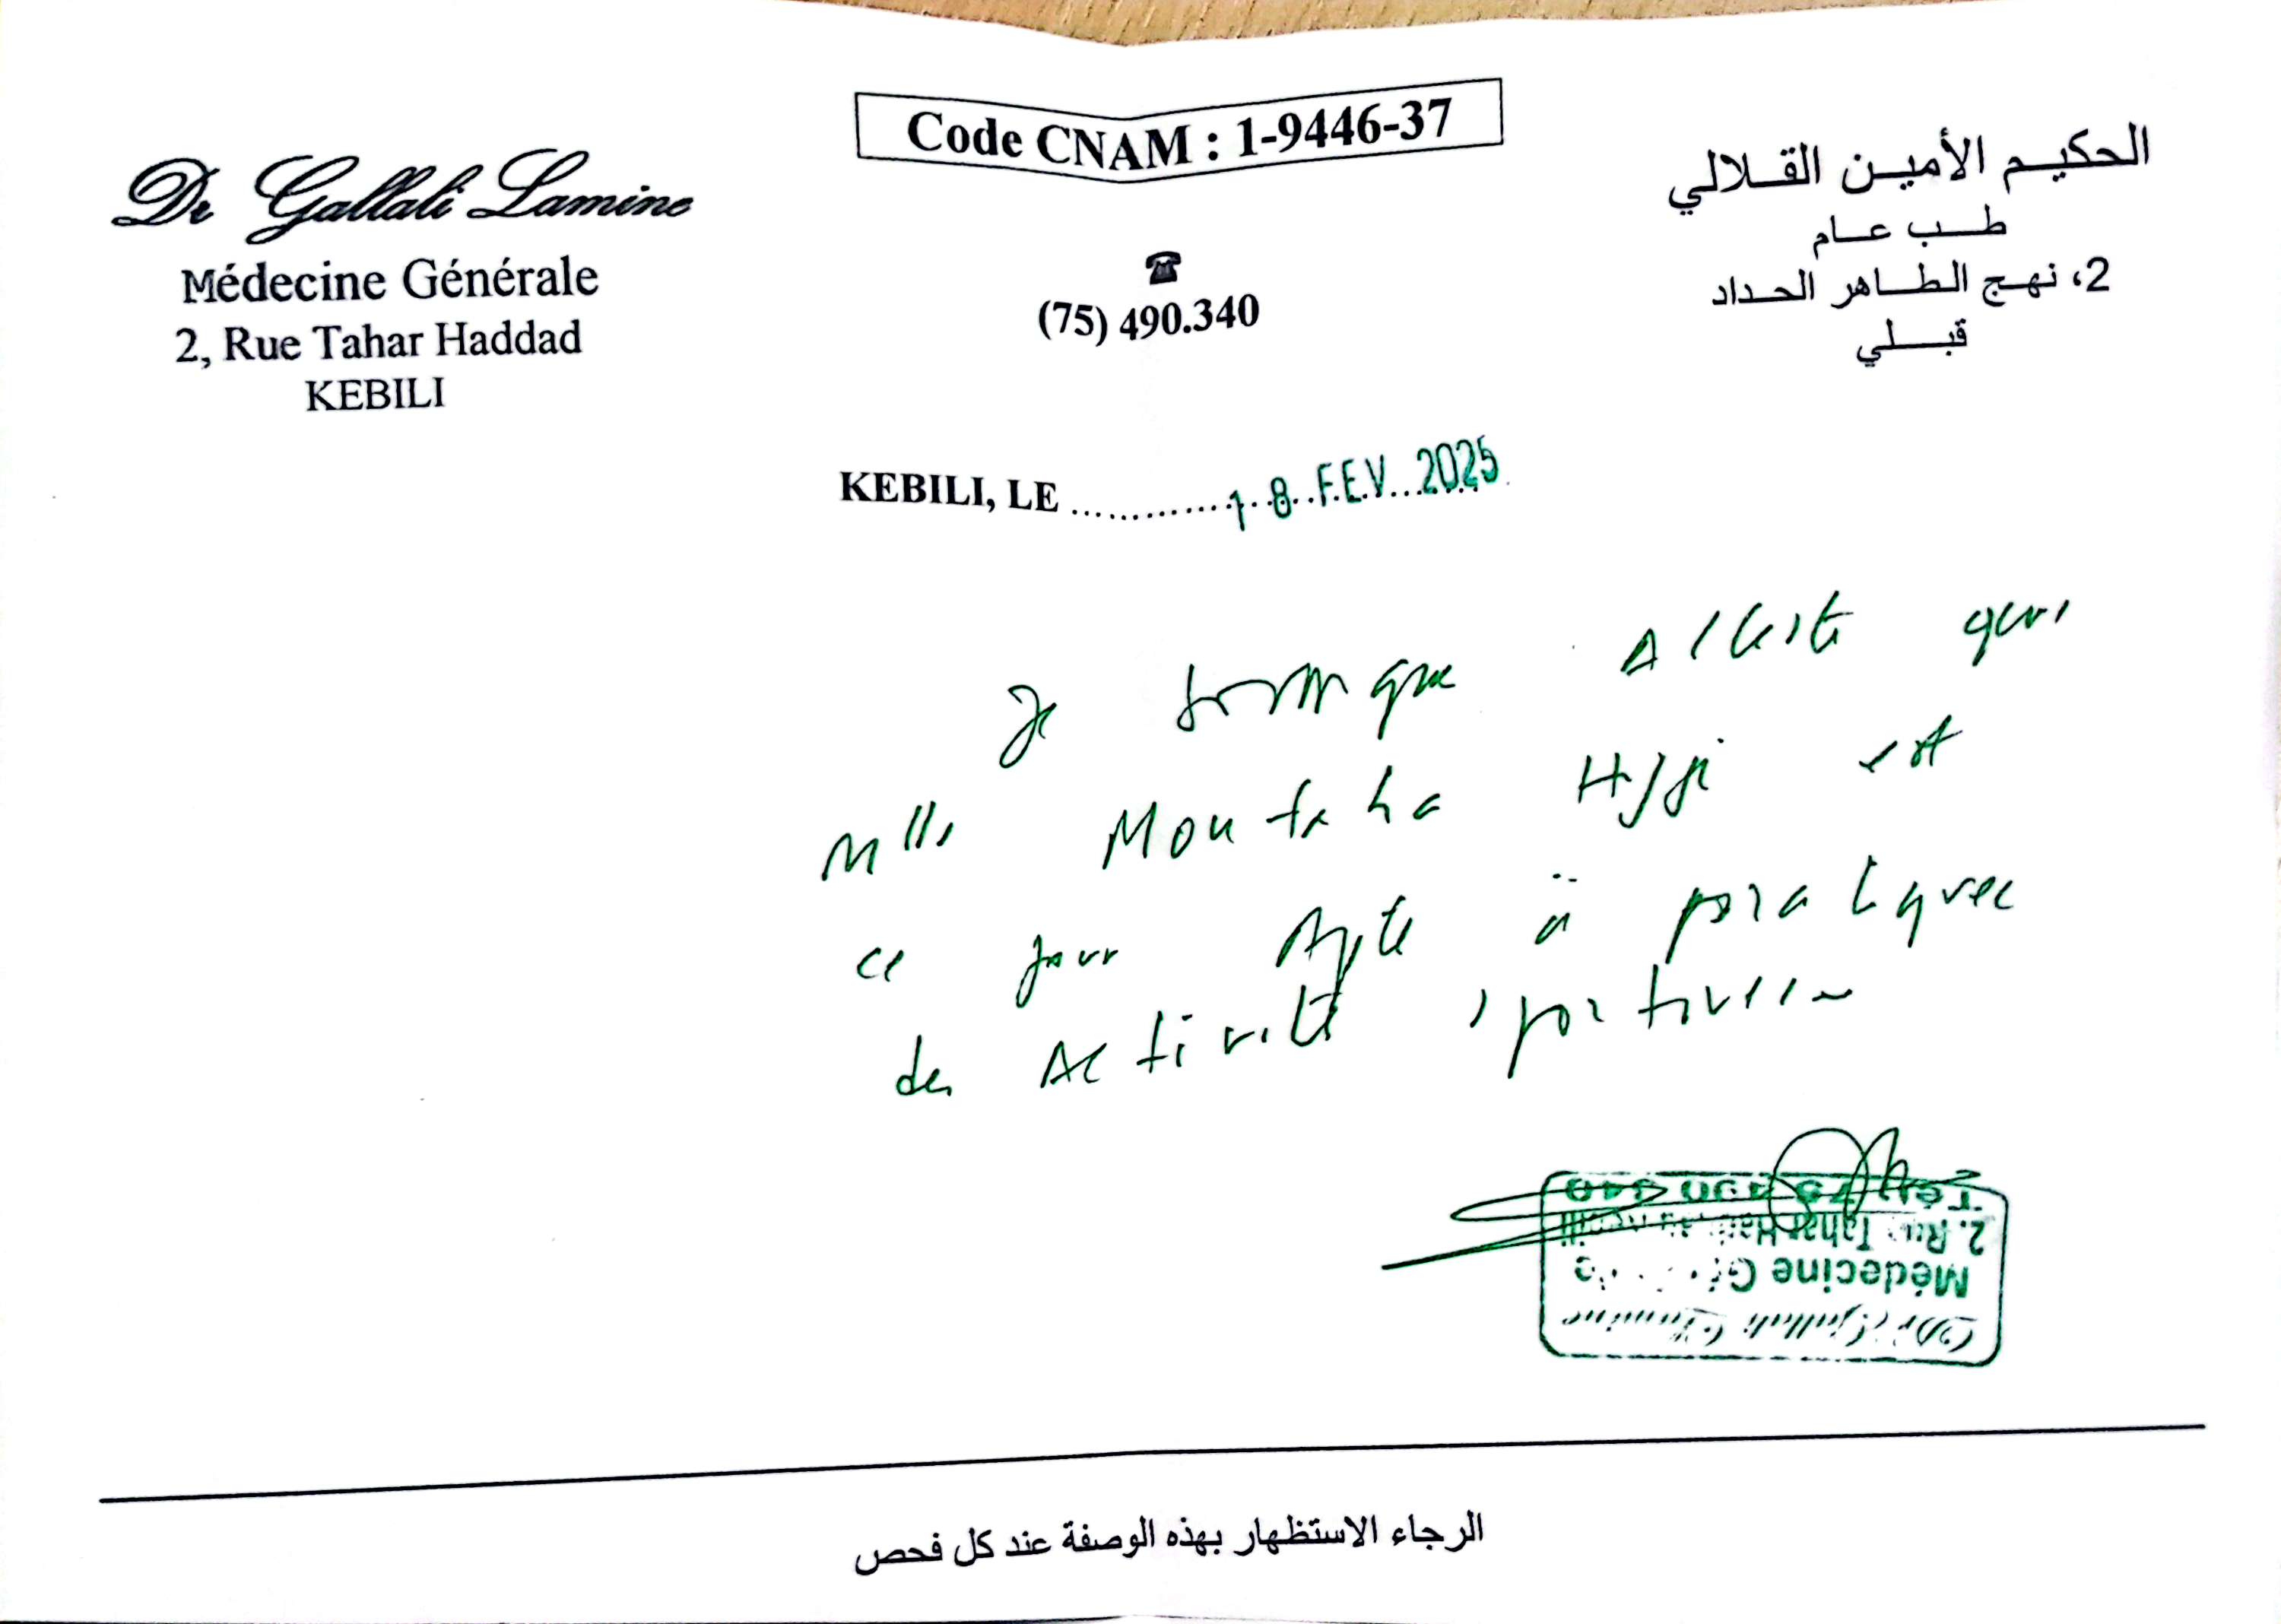 Code CNAM : 1-9446-37
Dr Gallali Lamine
Médecine Générale
2, Rue Tahar Haddad
KEBILI
☎
(75) 490.340
الحكيم الأمين القلالي
طب عام
2، نهج الطاهر الحداد
قبلي
KEBILI, LE 18 FEV. 2025
Je atteste que
Mlle Montaha est
ce jour Apte à pratiquer
des Activités sportives
Tél 75 490 340
2. Rue Tahar
Médecine
Dr Gallali Lamine
الرجاء الاستظهار بهذه الوصفة عند كل فحص